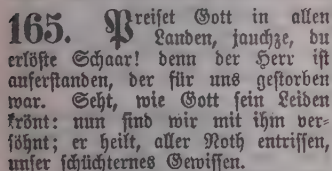 165. Preiset Gott in allen
Landen, jauchze, du
erlöste Schaar! denn der Herr ist
auferstanden, der für uns gestorben
war. Seht, wie Gott sein Leiden
krönt: nun sind wir mit ihm ver-
söhnt; er heilt, aller Noth entrissen,
unser schüchternes Gewissen.